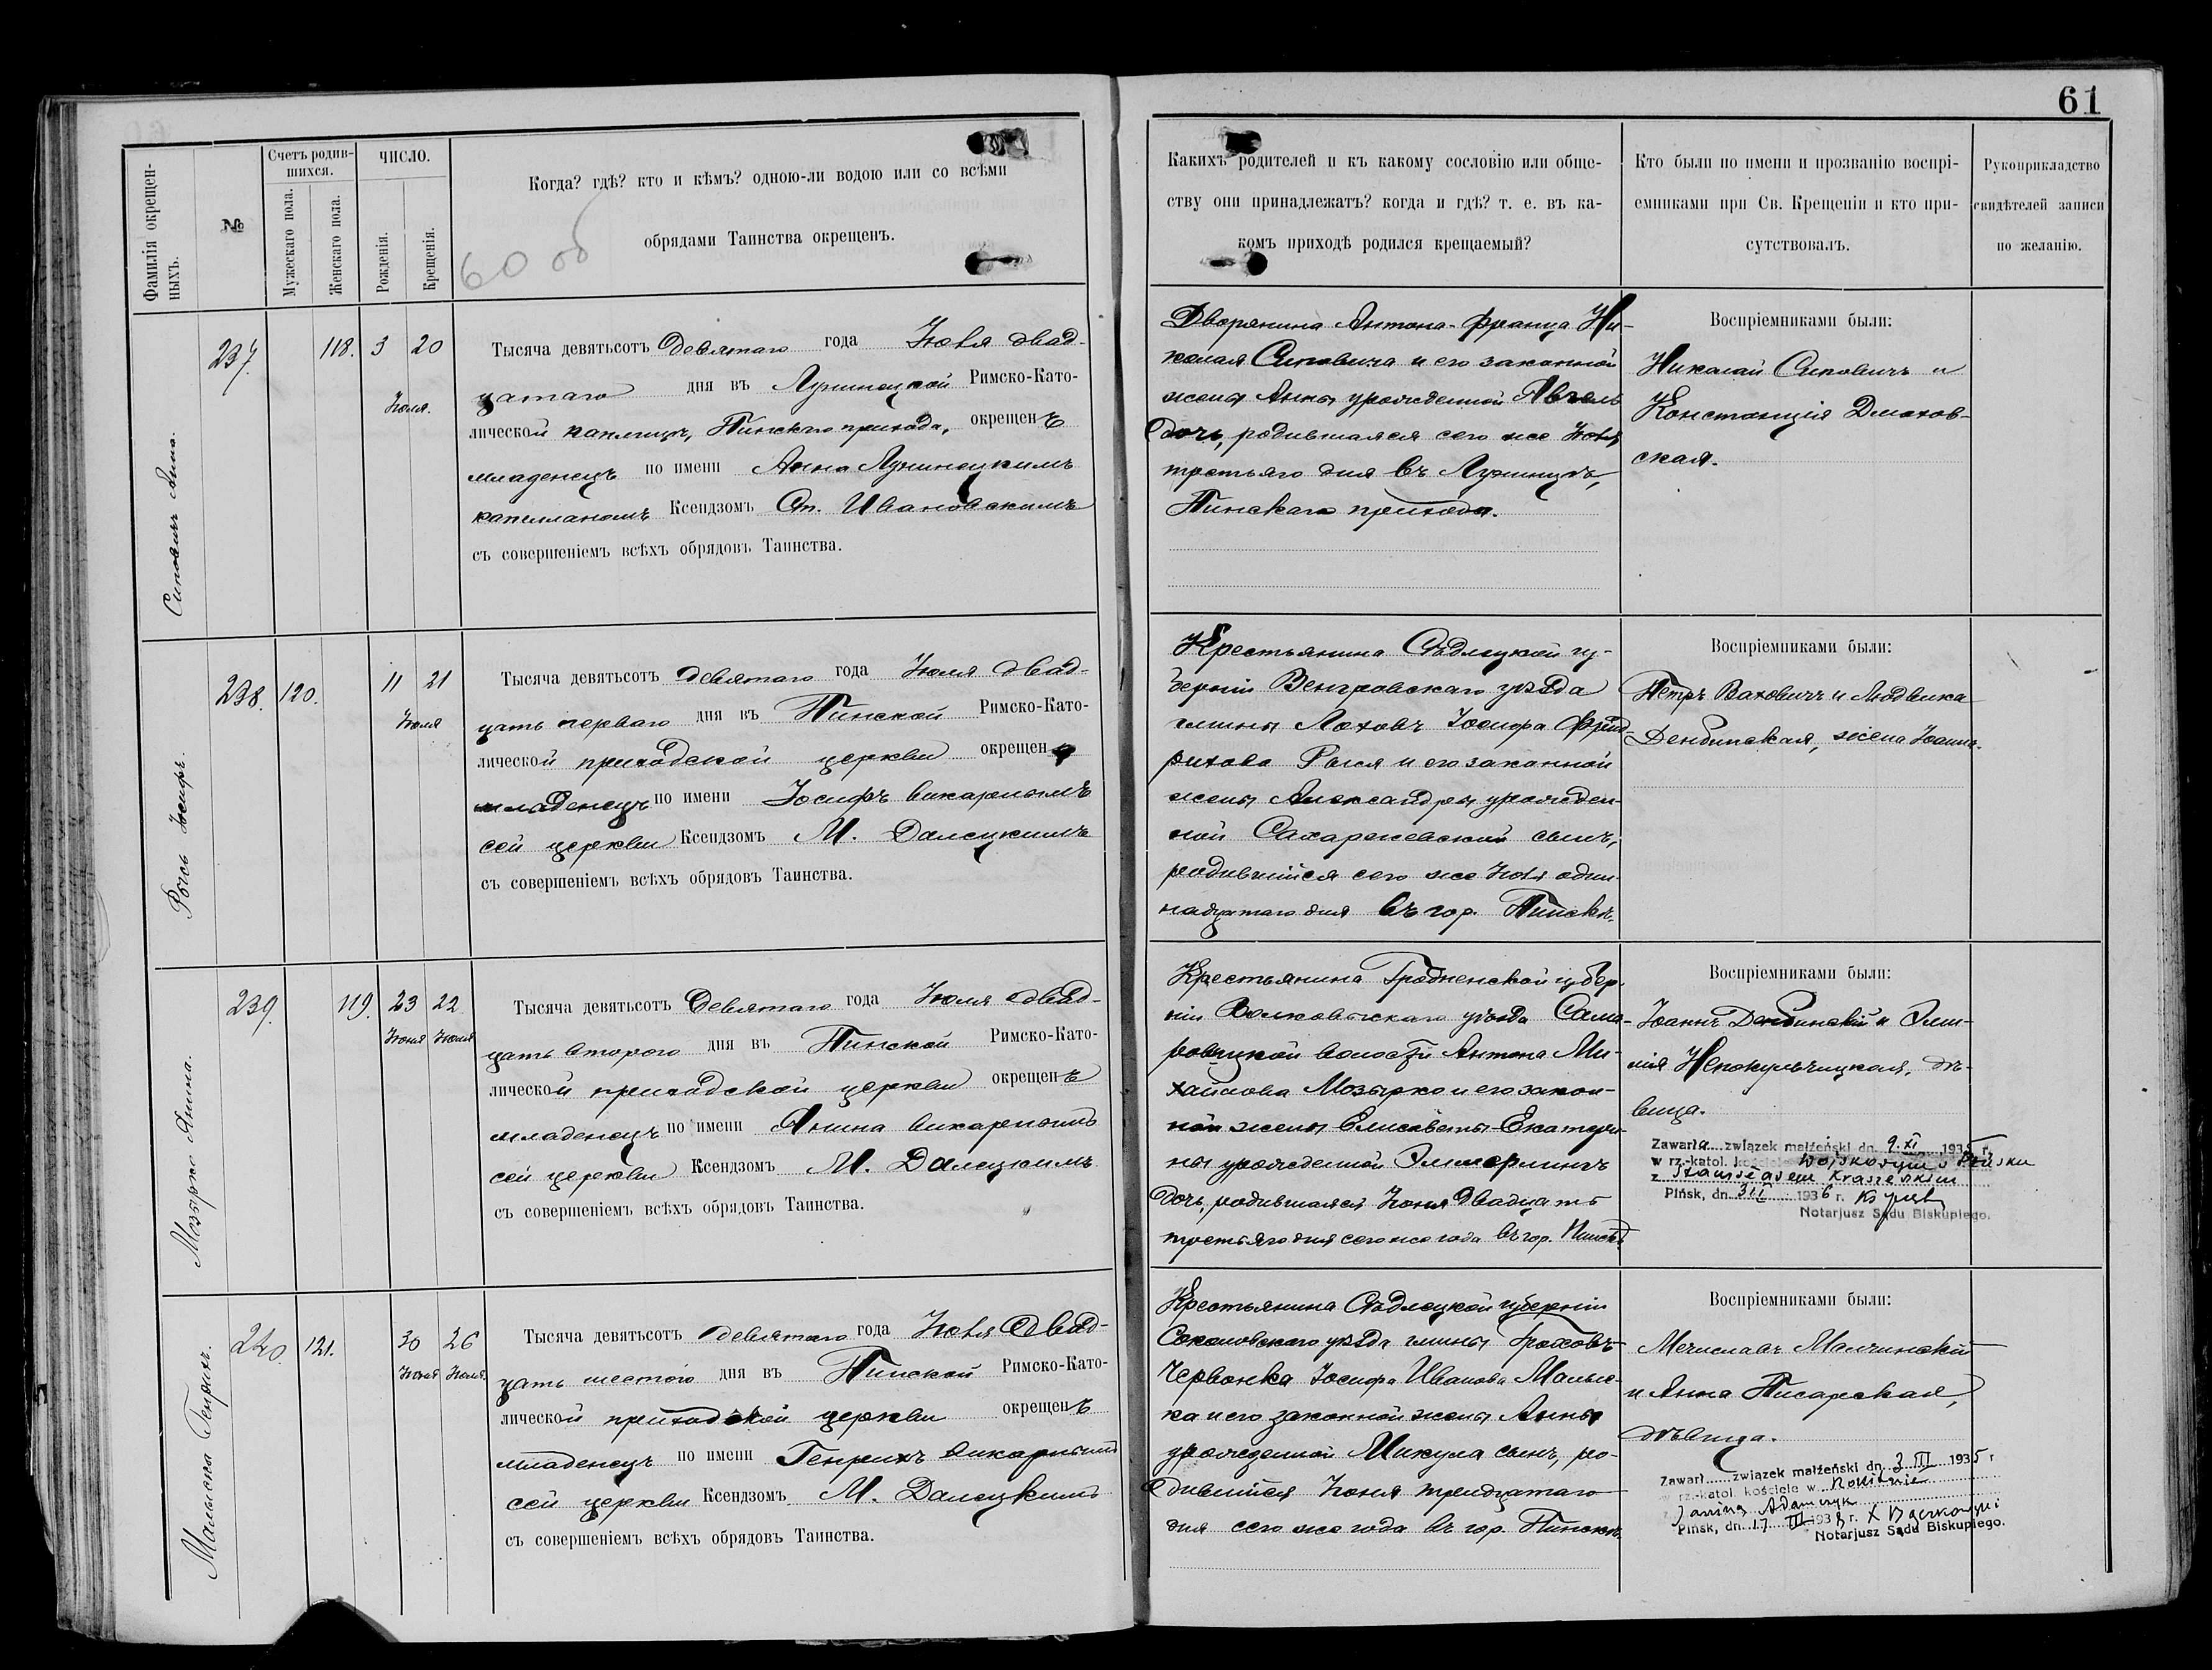 61
Фамилія окрещен-
ныхъ.
№
Счетъ родив-
шихся.
Мужескаго пола.
Женскаго пола.
ЧИСЛО.
Рожденія.
Крещенія.
Когда? гдѣ? кто и кѣмъ? одною-ли водою или со всѣми
обрядами Таинства окрещенъ.
60 об
Какихъ родителей и къ какому сословію или обще-
ству они принадлежатъ? когда и гдѣ? т. е. въ ка-
комъ приходѣ родился крещаемый?
Кто были по имени и прозванію воспрі-
емниками при Св. Крещеніи и кто при-
сутствовалъ.
Рукоприкладство
свидѣтелей записи
по желанію.
Сиповичъ Анна.
237. 118. 3 20
Іюля.
Тысяча девятьсотъ девятаго года Іюля двад-
цатаго дня въ Лунинецкой Римско-Като-
лической каплицѣ, Пинскаго прихода, окрещенъ
младенецъ по имени Анна Лунинецкимъ
капелланомъ Ксендзомъ Ст. Ивановскимъ
съ совершеніемъ всѣхъ обрядовъ Таинства.
Дворянина Антона-Франца Ни-
колая Сиповича и его законной
жены Анны урожденной
дочь, родившаяся сего же Іюля
третьяго дня въ Лунинцѣ,
Пинскаго прихода.
Воспріемниками были:
Николай Сиповичъ и
Констанція Дмохов-
ская.
Рогъ Іосифъ.
238. 120. 11 21
Іюля
Тысяча девятьсотъ девятаго года Іюля двад-
цать перваго дня въ Пинской Римско-Като-
лической приходской церкви окрещенъ
младенецъ по имени Іосифъ викарнымъ
сей церкви Ксендзомъ М. Далецкимъ
съ совершеніемъ всѣхъ обрядовъ Таинства.
Крестьянина Сѣдлецкой гу-
берніи Венгровскаго уѣзда
гмины Лоховъ Іосифа Фрид-
рихова и его законной
жены Александры урожден-
ной сынъ,
родившійся сего же Іюля один-
надцатаго дня въ гор. Пинскѣ.
Воспріемниками были:
Петръ Ваховичъ и Людвика
Дембинская, жена Іоанна.
Мозырко Янина.
239. 119. 23 22
Іюня Іюля
Тысяча девятьсотъ девятаго года Іюля двад-
цать второго дня въ Пинской Римско-Като-
лической приходской церкви окрещенъ
младенецъ по имени Янина викарнымъ
сей церкви Ксендзомъ М. Далецкимъ
съ совершеніемъ всѣхъ обрядовъ Таинства.
Крестьянина Гродненской губер-
ніи Волковыскаго уѣзда Само-
ровицкой волости Антона Ми-
хайлова Мозырко и его закон-
ной жены Елисаветы-Екатери-
ны урожденной
дочь, родившаяся Іюня двадцать
третьяго дня сего же года въ гор. Пинскѣ.
Воспріемниками были:
Іоаннъ Дембинскій и Эми-
лія Непокульчицкая, дѣ-
вица.
Zawarła związek małżeński dn. 9.XI 1935 r.
w rz.-katol. kościele wojskowym w Pińsku
z Stanisławem Krasieńskim
Pińsk, dn. 3 II 1936 r.
Notarjusz Sądu Biskupiego.
Малыска Генрихъ.
240. 121. 30 26
Іюня Іюля.
Тысяча девятьсотъ девятаго года Іюля двад-
цать шестого дня въ Пинской Римско-Като-
лической приходской церкви окрещенъ
младенецъ по имени Генрихъ викарнымъ
сей церкви Ксендзомъ М. Далецкимъ
съ совершеніемъ всѣхъ обрядовъ Таинства.
Крестьянина Сѣдлецкой губерніи
Соколовскаго уѣзда гмины Гроховъ-
Червонка Іосифа Иванова Малыс-
ка и его законной жены Анны
урожденной Микула сынъ, ро-
дившійся Іюня тридцатаго
дня сего же года въ гор. Пинскѣ.
Воспріемниками были:
Мечиславъ Малчинскій
и Анна Писарская,
дѣвица.
Zawarł związek małżeński dn. 3 III 1935 r
w rz.-katol. kościele w Rokitnie
z Janiną Adamczyk
Pińsk, dn. 17 III 1938 r.
Notarjusz Sądu Biskupiego.